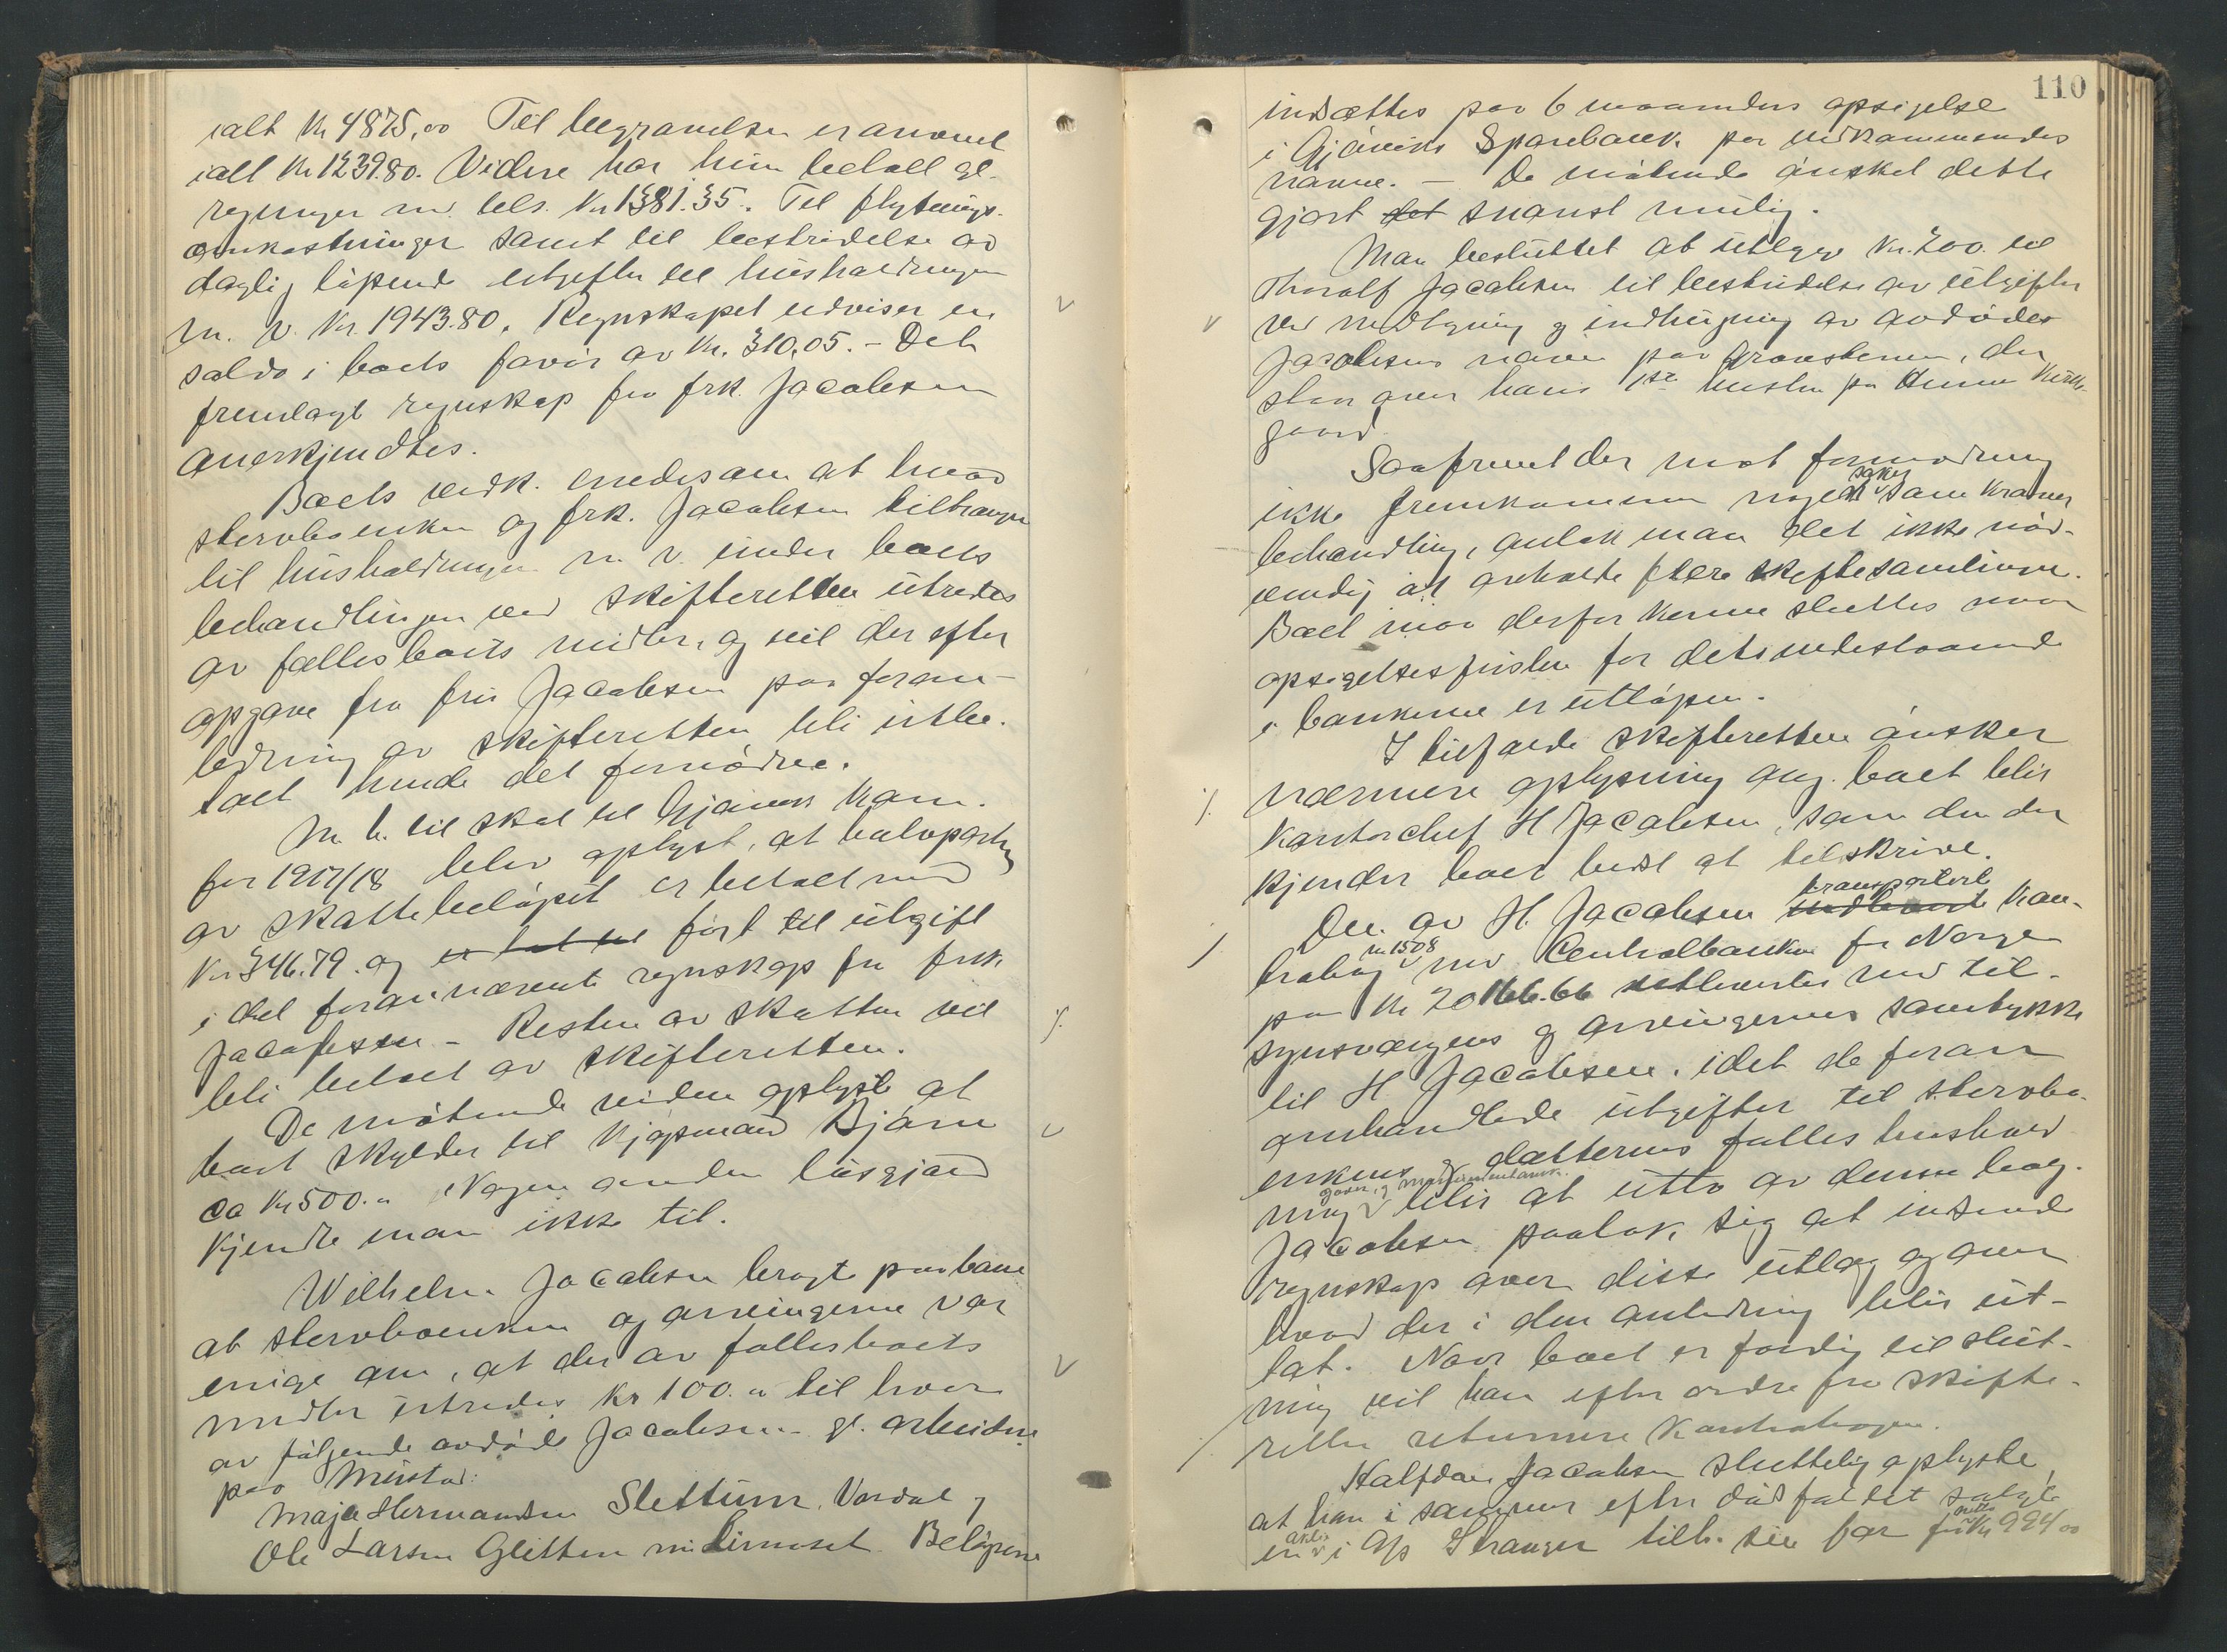 ialt Kr 4875,00 Til begravelsen er anvendt
ialt Kr 1239.80. Videre har hun betalt gl.
regninger m. tils. Kr 1381.35. Til flytnings-
omkostninger samt til bestridelse av
daglig løpende utgifter til husholdningen
m. v. Kr. 1943.80. Regnskapet utviser en
saldo i boets favør av Kr. 310,05. - Det
fremlagt regnskap fra frk. Jacobsen
anerkjendtes.
Boets vedk. enedes om at hvad
stervboenken og frk. Jacobsen tiltrænger
til husholdningen m. v. under boets
behandlingen ved skifteretten utredes
av fællesboets midler, og vil der efter
opgave fra fru Jacobsen paa foran-
ledning av skifteretten bli utbe-
talt hende det fornødne.
M. h. til skat til Gjøvik Kom.
for 1917/18 blev oplyst, at halvparten
av skattebeløpet er betalt med
Kr 346.79. og er ført til utgift
i det foran nævnte regnskap fra frk.
Jacobsen - Resten av skatten vil
bli betalt av skifteretten.
De møtende videre oplyste at
boet skylder til Kjøpmand Bjørn
ca Kr 500.- Nogen anden løsgjæld
kjendte man ikke til.
Wilhelm Jacobsen bragte paa bane
at stervboenken og arvingerne var
enige om, at der av fællesboets
midler utredes Kr 100.- til hver
av følgende avdøde Jacobsens gl. arbeidere
paa Mustad:
Maja Hermandsen Slettum, Vardal, og
Ole Larsen Glitten Beløpene
110
indsættes paa 6 maaneders opsigelse
i Gjøviks Sparebank paa vedkommendes
navne. - De møtende ønsket dette
gjort det snarest mulig.
Man besluttet at utlegge Kr. 200. til
Thoralf Jacobsen til bestridelse av utgifter
ved og indhugning av avdøde
Jacobsens navn paa gravstenen, der
staar over hans 1ste hustru paa Hunn Kirke-
gaard.
Saafremt der mot formodning
ikke fremkommer nogen saker som kræver
behandling, antok man det ikke nød-
vendig at avholde flere skiftesamlinger.
Boet maa derfor kunne sluttes naar
opsigelsesfristen for det indestaaende
i bankerne er utløpen.
I tilfælde skifteretten ønsker
nærmere oplysning ang. boet blir
kontorchef H Jacobsen, som den der
kjender boet bedst at tilskrive.
Den av H. Jacobsen transporterte Kon-
trabog nr 1508 ved Centralbanken for Norge
paa Kr 20166.66 utleveres med til-
synsvergens og arvingernes samtykke
til H Jacobsen, idet de foran
omhandlede utgifter til stervbo-
enkens og datterens fælles hushold-
ning blir at utta av denne bog.
Jacobsen paatok sig at indsende
regnskap over disse utlæg og over
hvad der i den anledning blir ut-
tat. Naar boet er færdig til slut-
ning vil han efter ordre fra skifte-
retten returnere Kontrabogen.
Halfdan Jacobsen sluttelig oplyste,
at han i sommer efter dødsfaldet solgte
en aktie i A/s Stranger tilh. sin far for netto Kr 994 00